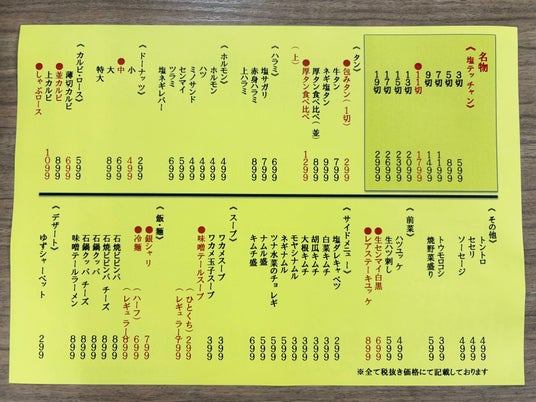 名物
《塩テッチャン》
3切 599
5切 899
7切 1199
9切 1499
●11切 1799
13切 2099
15切 2399
17切 2699
19切 2999
《タン》
●包みタン(1切) 299
牛タン 799
ネギ塩タン 999
厚タン食べ比べ(並) 899
●厚タン食べ比べ(上) 1299
《ハラミ》
塩サガリ 699
赤身ハラミ 799
上ハラミ 899
《ホルモン》
ホルモン 499
ハツ 499
ミノサンド 499
センマイ 599
ツラミ 699
塩ネギレバー
《ドーナッツ》
小 299
●中 499
大 699
特大 899
《カルビ・ロース》
薄切カルビ 599
●並カルビ 699
上カルビ 899
●しゃぶロース 1099
《その他》
トントロ 499
セセリ 499
ソーセージ 499
トウモロコシ 399
焼野菜盛り 599
《前菜》
ハツユッケ 499
生ハツ刺し 599
●生センマイ白黒 699
●レアステーキユッケ 899
《サイドメニュー》
塩ダレキャベツ 299
白菜キムチ 399
胡瓜キムチ 399
大根キムチ 399
モヤシナムル 399
ネギナムル 399
ツナ水菜のチョレギ 599
ナムル盛 599
キムチ盛 699
《スープ》
ワカメスープ 399
ワカメ玉子スープ 399
●味噌テールスープ
(ひとくち)299
(レギュラー)799
《飯・麺》
●銀シャリ 799
●冷麺
(ハーフ)699
(レギュラー)899
石焼ビビンバ 899
石焼ビビンバ チーズ 999
石鍋クッパ 899
石鍋クッパ チーズ 999
味噌テールラーメン 899
《デザート》
ゆずシャーベット 299
※全て税抜き価格にて記載しております